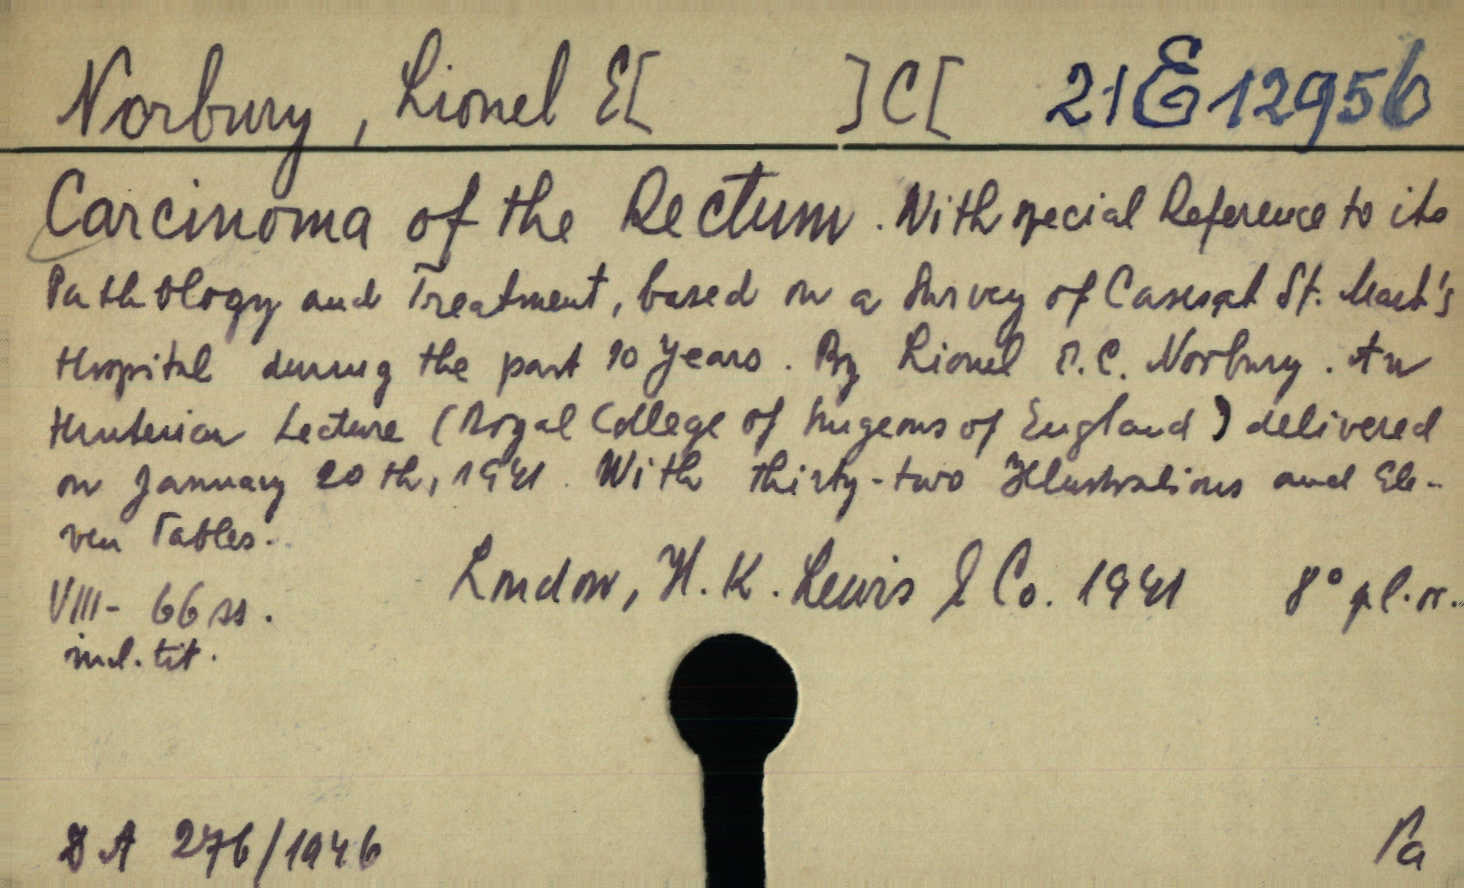 Norbury, Lionel E[ ] C[ 21E12956
Carcinoma of the Rectum. With special Reference to its
Pathology and Treatment, based on a Survey of Cases at St. Mark's
Hospital during the past 10 Years. By Lionel E.C. Norbury. An
Hunterian Lecture (Royal College of Surgeons of England) delivered
on January 20th, 1941. With thirty-two Illustrations and Ele-
ven Tables.
London, H. K. Lewis & Co. 1941 8° pl. rr.
VIII- 66 ss.
incl. tit.
A 276/1946
Pa